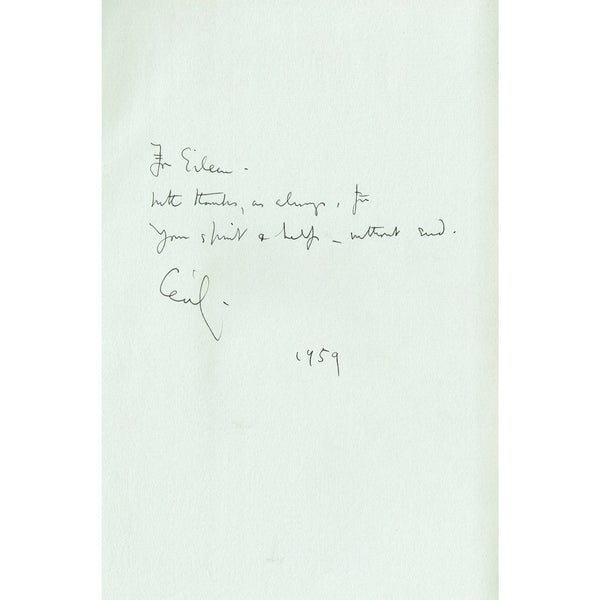 For Eileen -
with thanks, as always, for
your spirit & help - without end.
Cecil -
1959